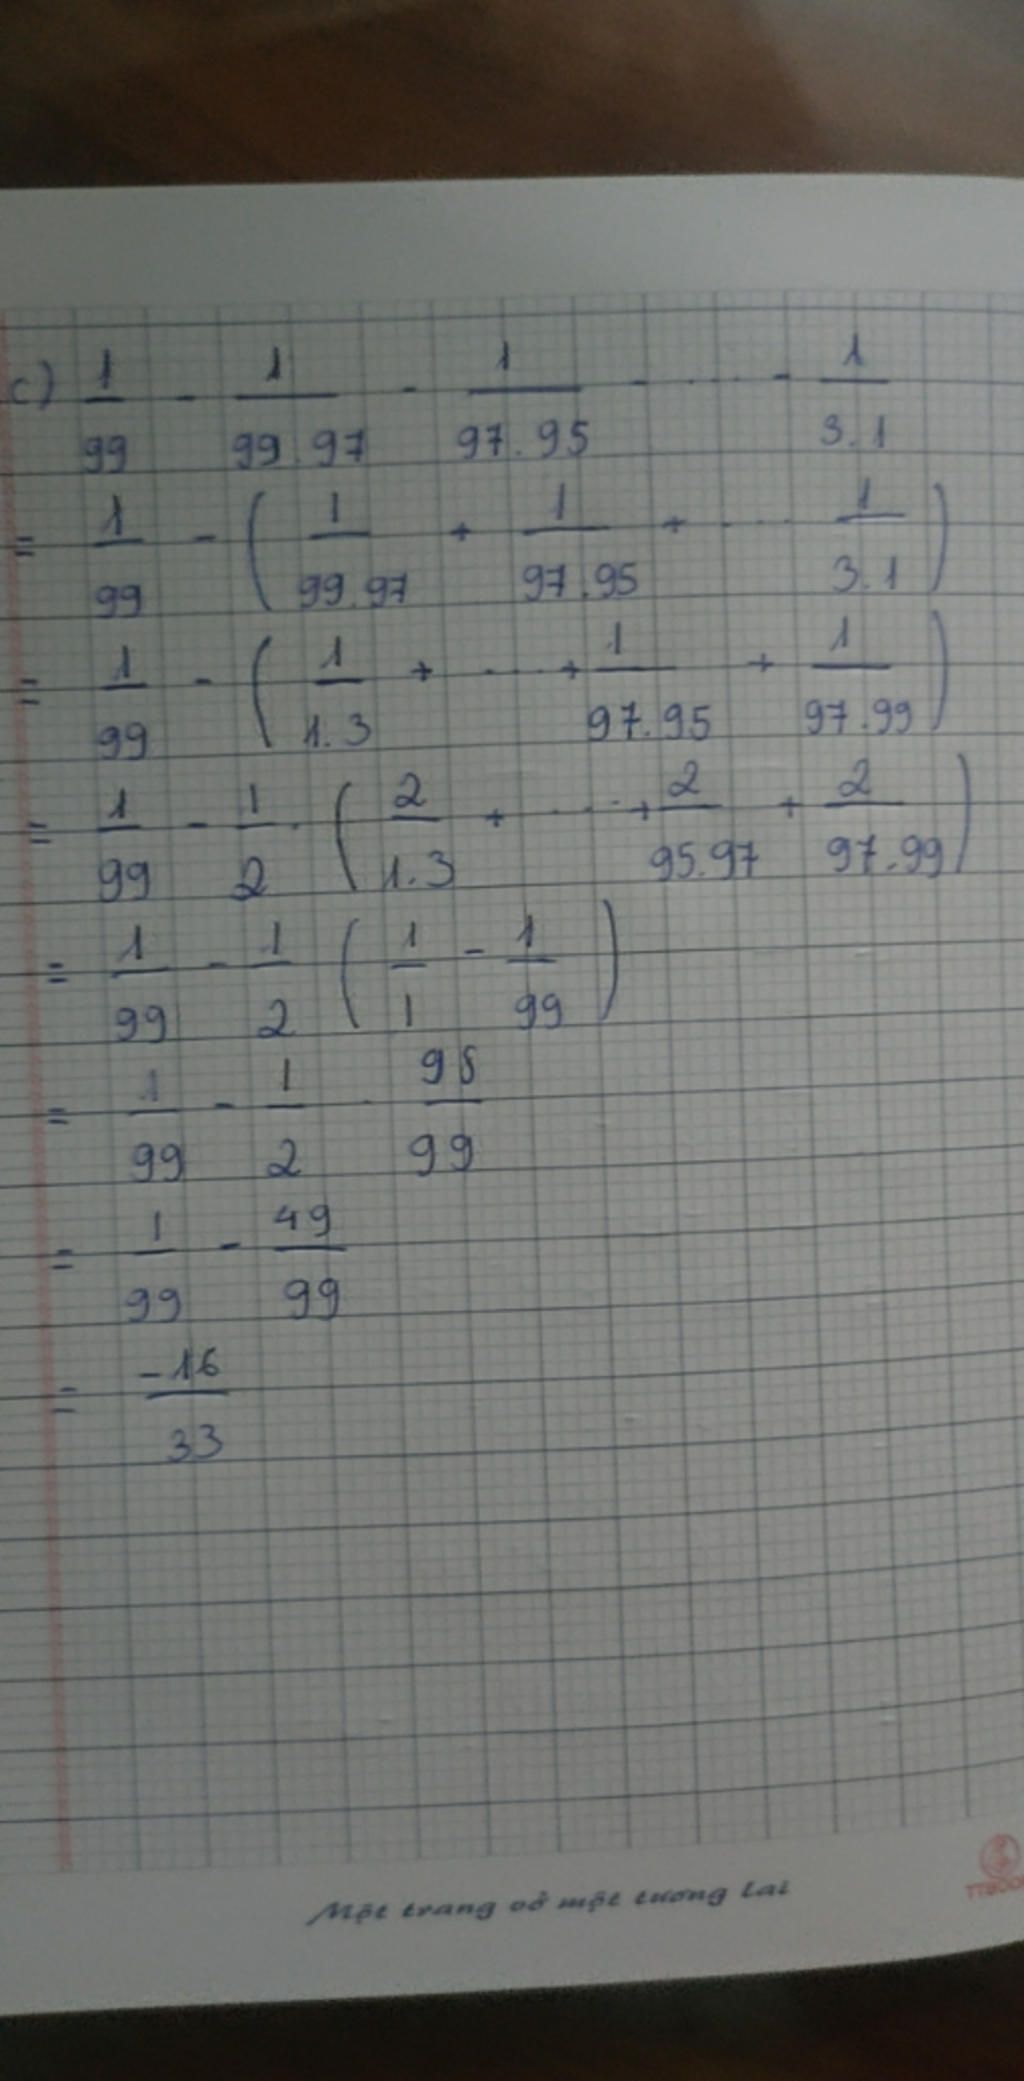 c) 1/99 - 1/99.97 - 1/97.95 - ..... - 1/3.1
= 1/99 - ( 1/99.97 + 1/97.95 + .... 1/3.1 )
= 1/99 - ( 1/1.3 + ..... + 1/97.95 + 1/97.99 )
= 1/99 - 1/2 . ( 2/1.3 + ..... + 2/95.97 + 2/97.99 )
= 1/99 - 1/2 ( 1/1 - 1/99 )
= 1/99 - 1/2 . 98/99
= 1/99 - 49/99
= -16/33
Một trang vở một tương lai